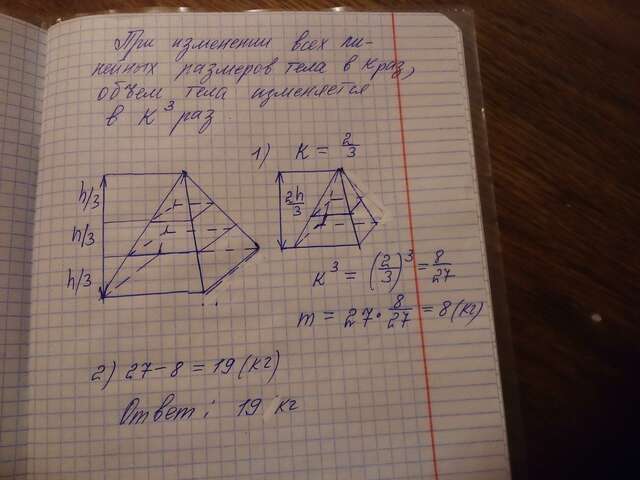 При изменении всех ли-
нейных размеров тела в к раз,
объем тела изменяется
в К³ раз.
1) К = 2/3
h/3
h/3
h/3
2h/3
К³ = (2/3)³ = 8/27
m = 27 · 8/27 = 8 (кг)
2) 27 - 8 = 19 (кг)
Ответ: 19 кг